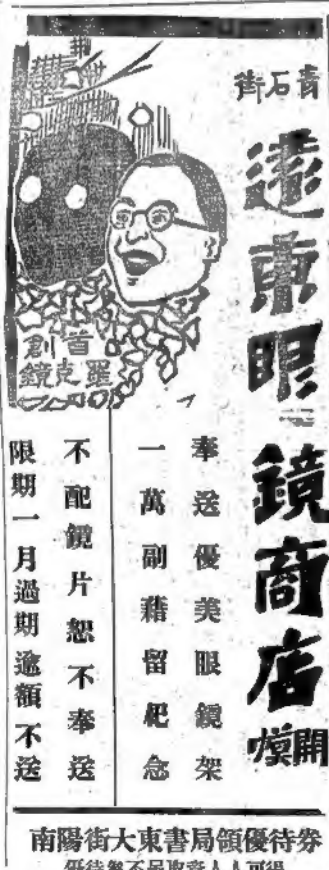 青石街
遠東眼鏡商店
開幕
首創
羅克鏡
奉送優美眼鏡架
一萬副藉留紀念
不配鏡片恕不奉送
限期一月過期逾額不送
南陽街大東書局領優待券
優待券不取資人人可得